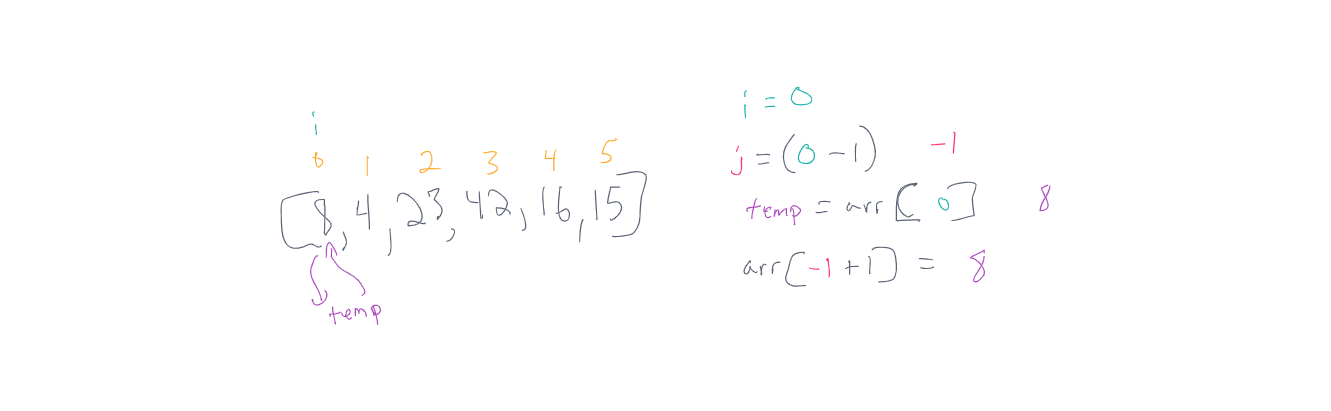 i
0 1 2 3 4 5
[8, 4, 23, 42, 16, 15]
temp
i = 0
j = (0 - 1) -1
temp = arr[0] 8
arr[-1 + 1] = 8